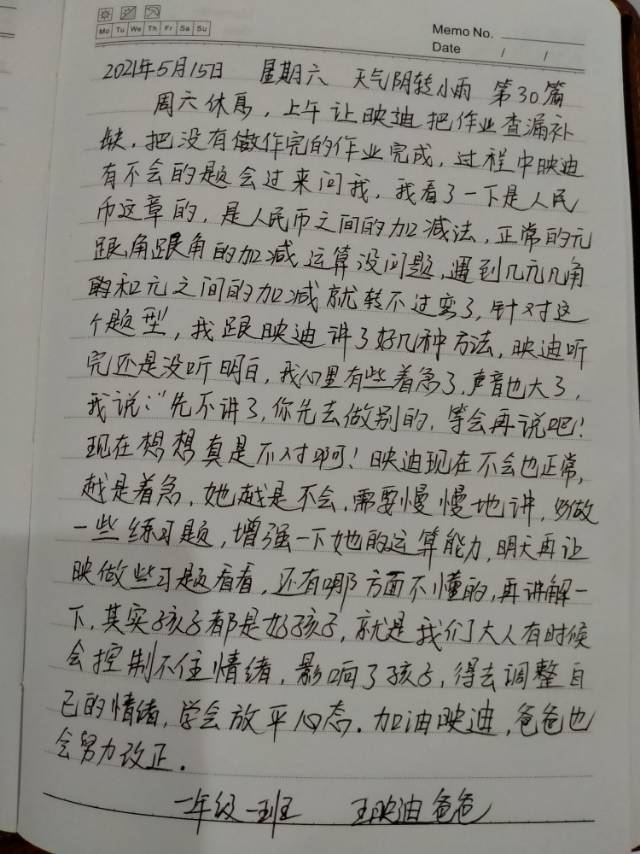 Mo Tu We Th Fr Sa Su
Memo No.
Date / /
2021年5月15日 星期六 天气阴转小雨 第30篇
周六休息，上午让映迪把作业查漏补
缺，把没有做作完的作业完成，过程中映迪
有不会的题会过来问我，我看了一下是人民
币这章的，是人民币之间的加减法，正常的元
跟角跟角的加减运算没问题，遇到几元几角
的和元之间的加减就转不过弯了，针对这
个题型，我跟映迪讲了好几种方法，映迪听
完还是没听明白，我心里有些着急了，声音也大了，
我说：“先不讲了，你先去做别的，等会再说吧！
现在想想真是不对啊！映迪现在不会也正常，
越是着急，她越是不会，需要慢慢地讲，多做
一些练习题，增强一下她的运算能力，明天再让
映做些习题看看，还有哪方面不懂的，再讲解一
下，其实孩子都是好孩子，就是我们大人有时候
会控制不住情绪，影响了孩子，得去调整自
己的情绪，学会放平心态．加油映迪，爸爸也
会努力改正．
一年级一班 王映迪爸爸